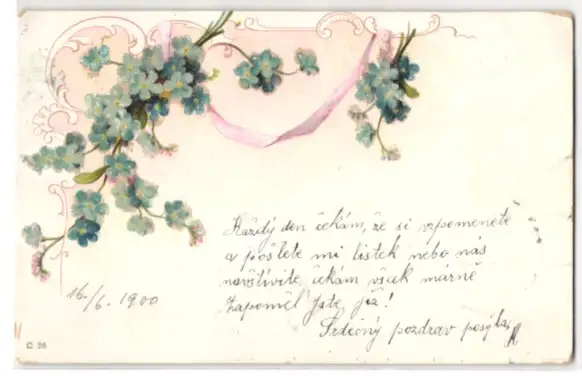 Každý den čekám, že si vzpomenete
a pošlete mi lístek nebo nás
navštívíte, čekám však márně
Zapoměl jste již!
Srdečný pozdrav posýlá
16./6. 1900
C 26